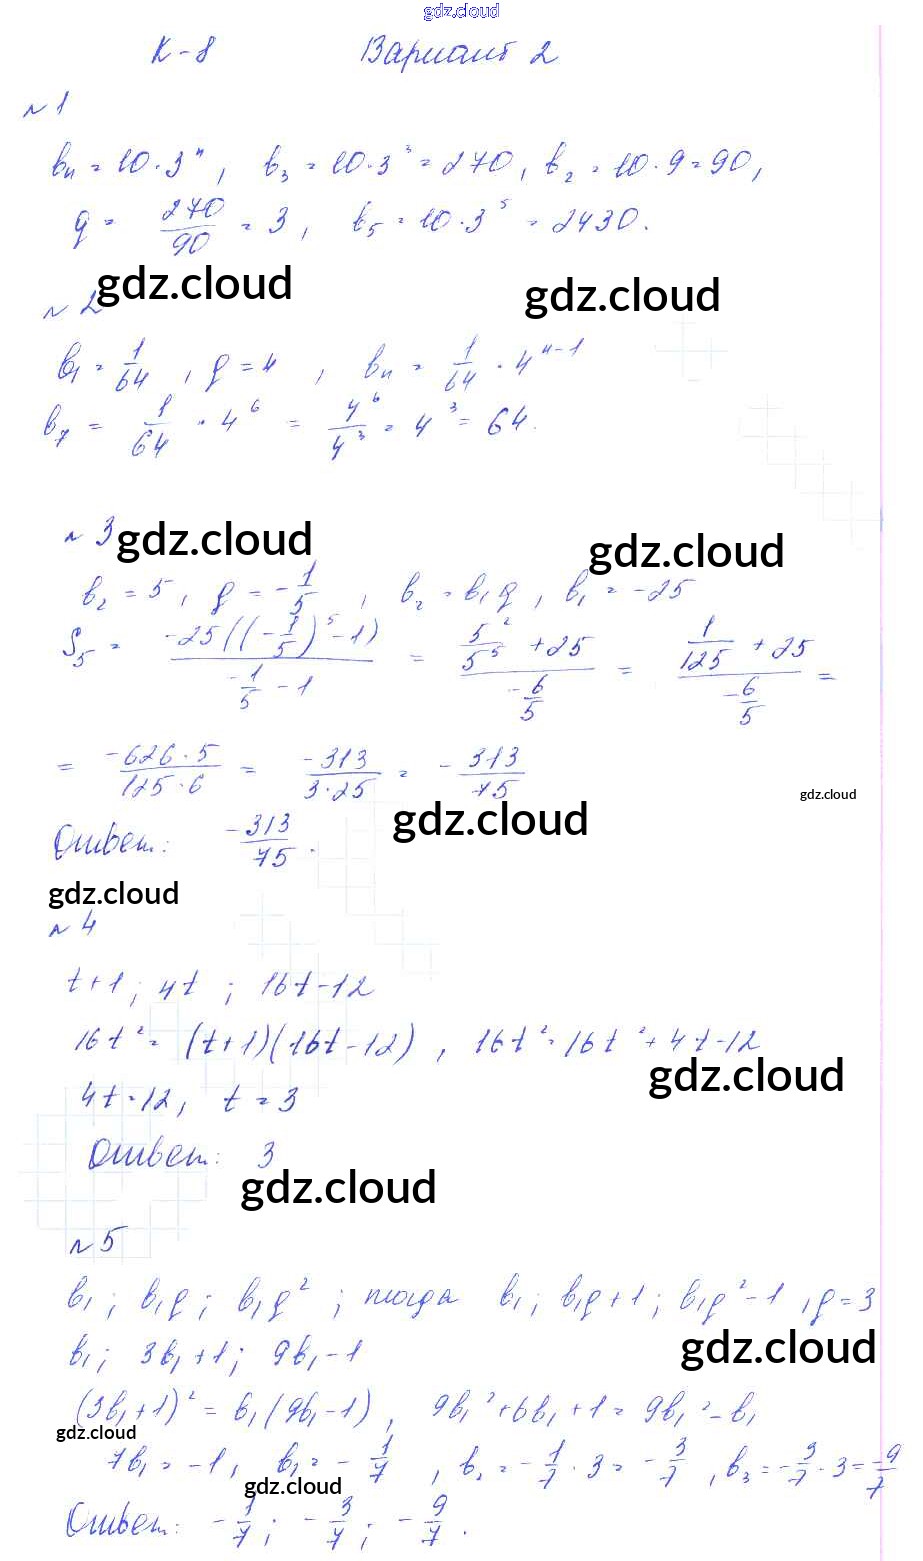 gdz.cloud
К-8 Вариант 2
№1
bₙ = 10·3ⁿ, b₃ = 10·3³ = 270, b₂ = 10·9 = 90,
q = 270/90 = 3, b₅ = 10·3⁵ = 2430.
gdz.cloud gdz.cloud
№2
b₁ = 1/64, q = 4, bₙ = 1/64 · 4ⁿ⁻¹
b₇ = 1/64 · 4⁶ = 4⁶/4³ = 4³ = 64.
№3 gdz.cloud gdz.cloud
b₂ = 5, q = -1/5, b₂ = b₁q, b₁ = -25
S₅ = -25((-1/5)⁵-1)/(-1/5-1) = (5²/5⁵+25)/(-6/5) = (1/125+25)/(-6/5) =
= -626·5/125·6 = -313/3·25 = -313/75
gdz.cloud
gdz.cloud
Ответ: -313/75.
gdz.cloud
№4
t+1; 4t; 16t-12
16t² = (t+1)(16t-12), 16t² = 16t²+4t-12
gdz.cloud
4t=12, t=3
Ответ: 3
gdz.cloud
№5
b₁; b₁q; b₁q²; тогда b₁; b₁q+1; b₁q²-1, q=3
gdz.cloud
b₁; 3b₁+1; 9b₁-1
(3b₁+1)² = b₁(9b₁-1), 9b₁²+6b₁+1 = 9b₁²-b₁
gdz.cloud
7b₁ = -1, b₁ = -1/7, b₂ = -1/7·3 = -3/7, b₃ = -3/7·3 = -9/7
gdz.cloud
Ответ: -1/7; -3/7; -9/7.